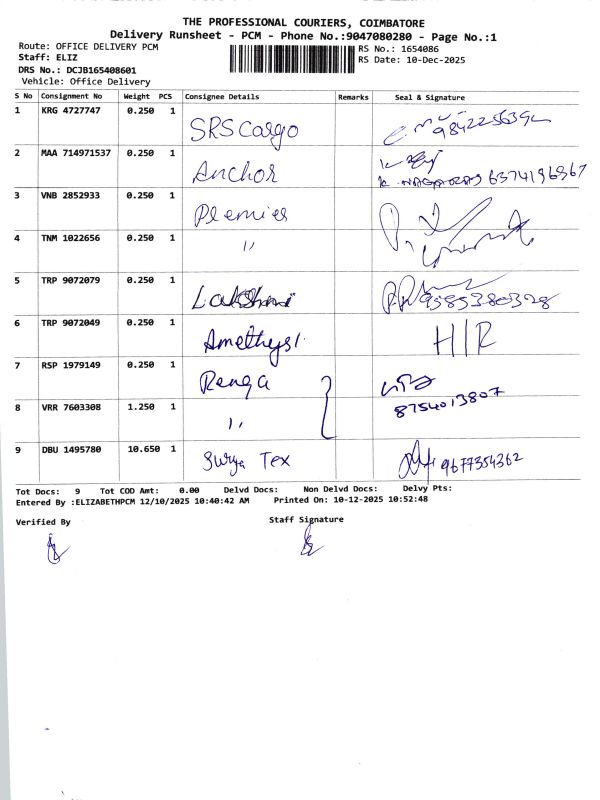 THE PROFESSIONAL COURIERS, COIMBATORE
Delivery Runsheet - PCM - Phone No.:9047080280 - Page No.:1
Route: OFFICE DELIVERY PCM
RS No.: 1654086
Staff: ELIZ
RS Date: 10-Dec-2025
DRS No.: DCJB165408601
Vehicle: Office Delivery
S No Consignment No Weight PCS Consignee Details Remarks Seal & Signature
1 KRG 4727747 0.250 1 SRS Cargo 9842256392
2 MAA 714971537 0.250 1 Anchor K. NAGARAJ 6374196967
3 VNB 2852933 0.250 1 Premier
4 TNM 1022656 0.250 1 "
5 TRP 9072079 0.250 1 Lakshmi 9585380328
6 TRP 9072049 0.250 1 Amethyst HIR
7 RSP 1979149 0.250 1 Renga 8754013807
8 VRR 7603308 1.250 1 "
9 DBU 1495780 10.650 1 Surya Tex 9677354362
Tot Docs: 9 Tot COD Amt: 0.00 Delvd Docs: Non Delvd Docs: Delvy Pts:
Entered By :ELIZABETHPCM 12/10/2025 10:40:42 AM Printed On: 10-12-2025 10:52:48
Verified By Staff Signature